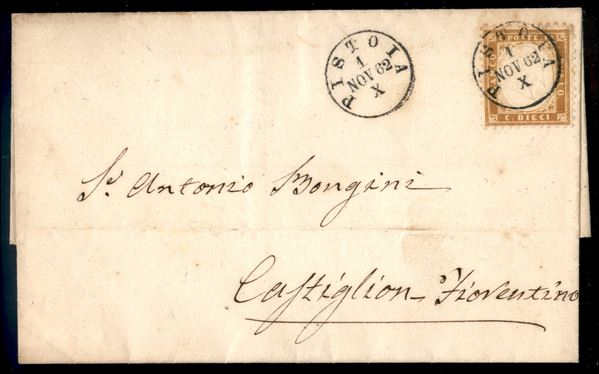 PISTOIA
1
NOV 62
X
POSTE
PISTOIA
1
NOV 62
X
C. DIECI
Sr. Antonio Bongini
Castiglion Fiorentino